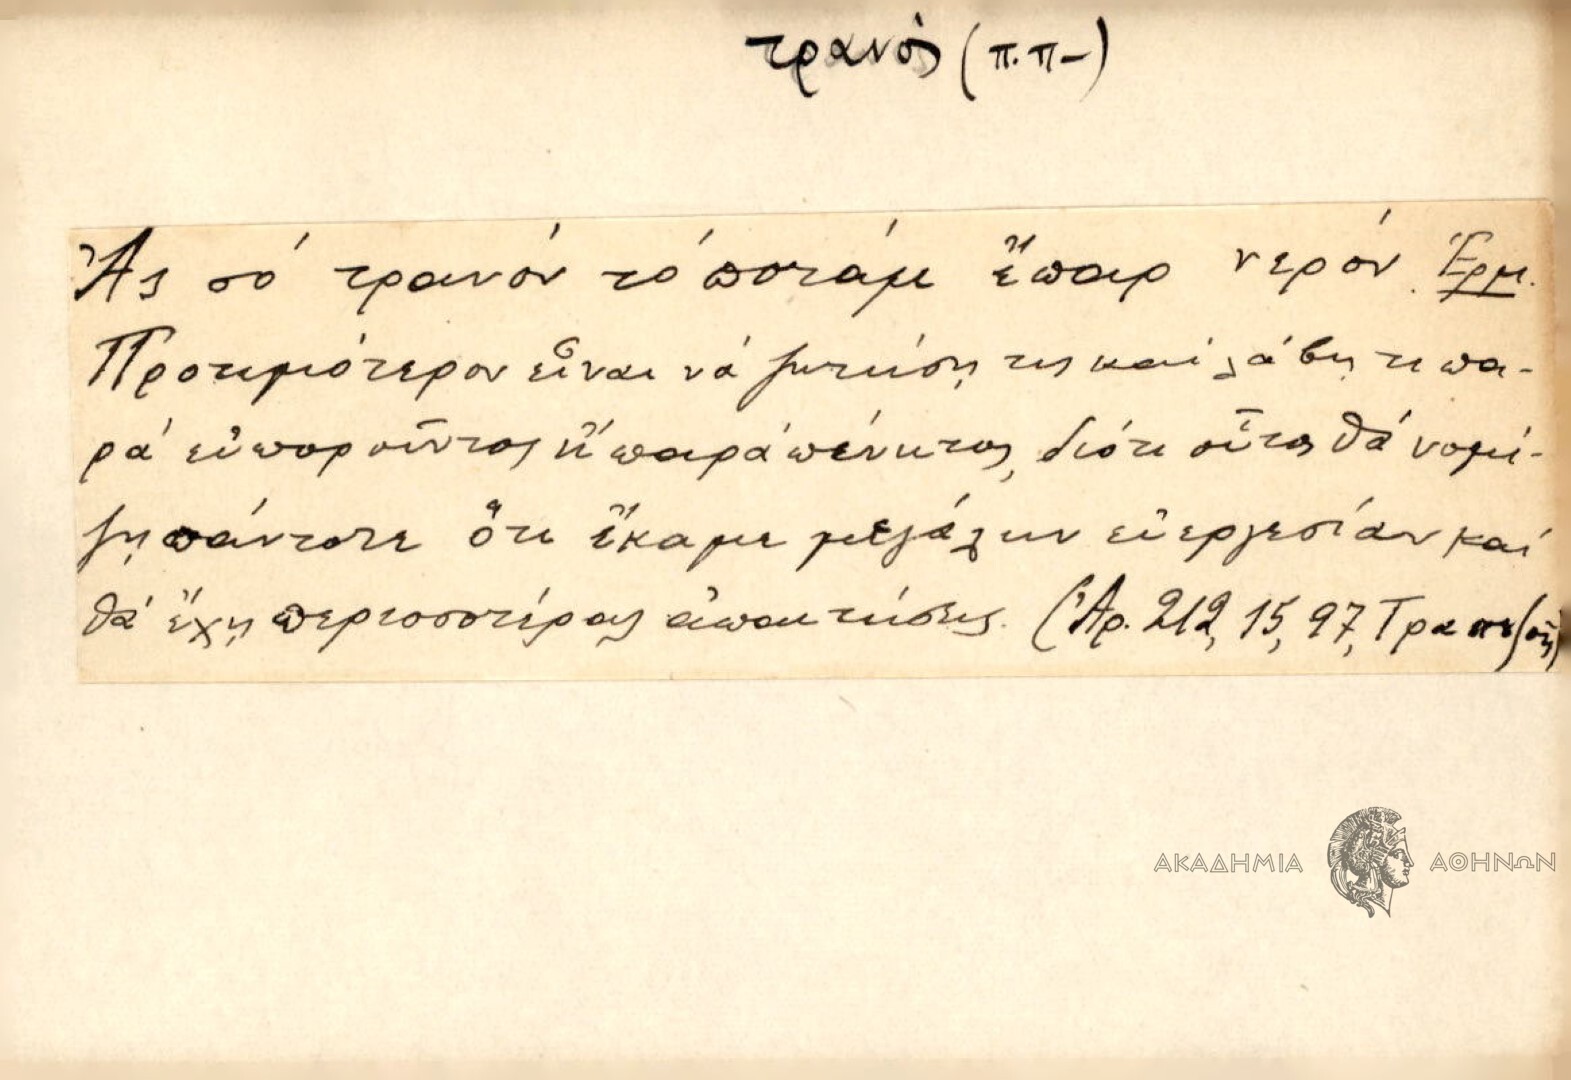 τρανός (π.π-)
Ἀς σό τρανόν τό ποτάμι ἔπαρ νερόν. Ἑρμ.
Προτιμιότερον εἶναι νά ζητήσῃ τις καί λάβῃ τι πα-
ρά εὐποροῦντος ἤ παρά πένητος, διότι οὗτος θά νομί-
ζῃ πάντοτε ὅτι ἔκαμε μεγάλην εὐεργεσίαν καί
θά ἔχῃ περισσοτέρας ἀπαιτήσεις. (Ἀρ. 212, 15, 97, Τραπεζοῦς)
ΑΚΑΔΗΜΙΑ ΑΘΗΝΩΝ